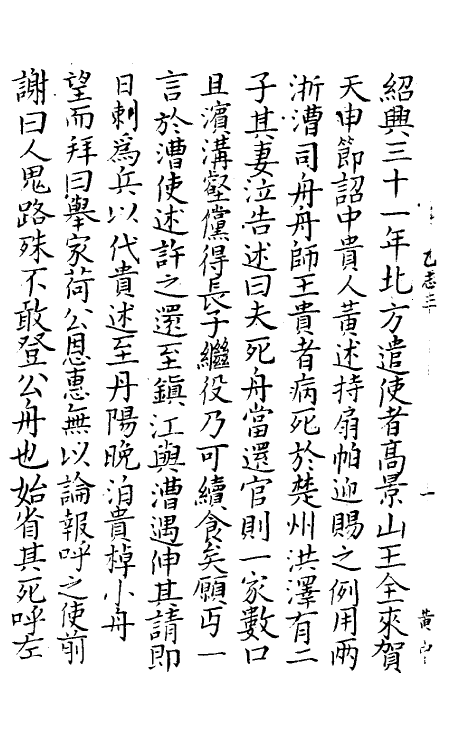 紹興三十一年北方遣使者高景山王全來賀
天申節詔中貴人黃述持扇帕迎賜之例用兩
浙漕司舟舟師王貴者病死於楚州洪澤有二
子其妻泣告述曰夫死舟當還官則一家數口
且濱溝壑儻得長子繼役乃可續食矣願丐一
言於漕使述許之還至鎮江與漕遇伸其請即
日刺爲兵以代貴述至丹陽晚泊貴棹小舟
望而拜曰舉家荷公恩惠無以論報呼之使前
謝曰人鬼路殊不敢登公舟也始省其死呼左
乙志三
一
黃